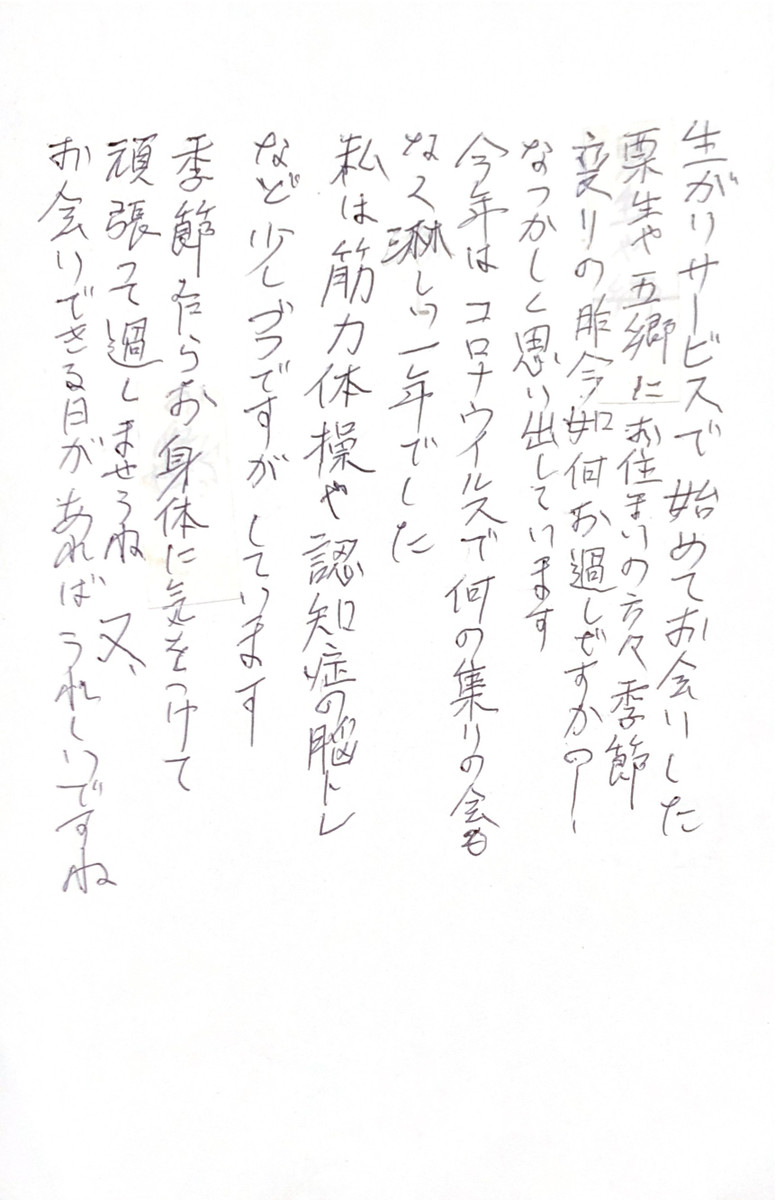 生がりサービスで始めてお会いした
粟生や五郷にお住まいの方々季節
変りの昨今如何お過しですかのー
なつかしく思い出しています
今年はコロナウイルスで何の集りの会も
なく淋しい一年でした
私は筋力体操や認知症の脳トレ
など少しづつですがしています
季節からお身体に気をつけて
頑張って過しませうね 又、
お会いできる日があればうれしいですね